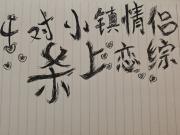 对小镇情侣
杀上恋综